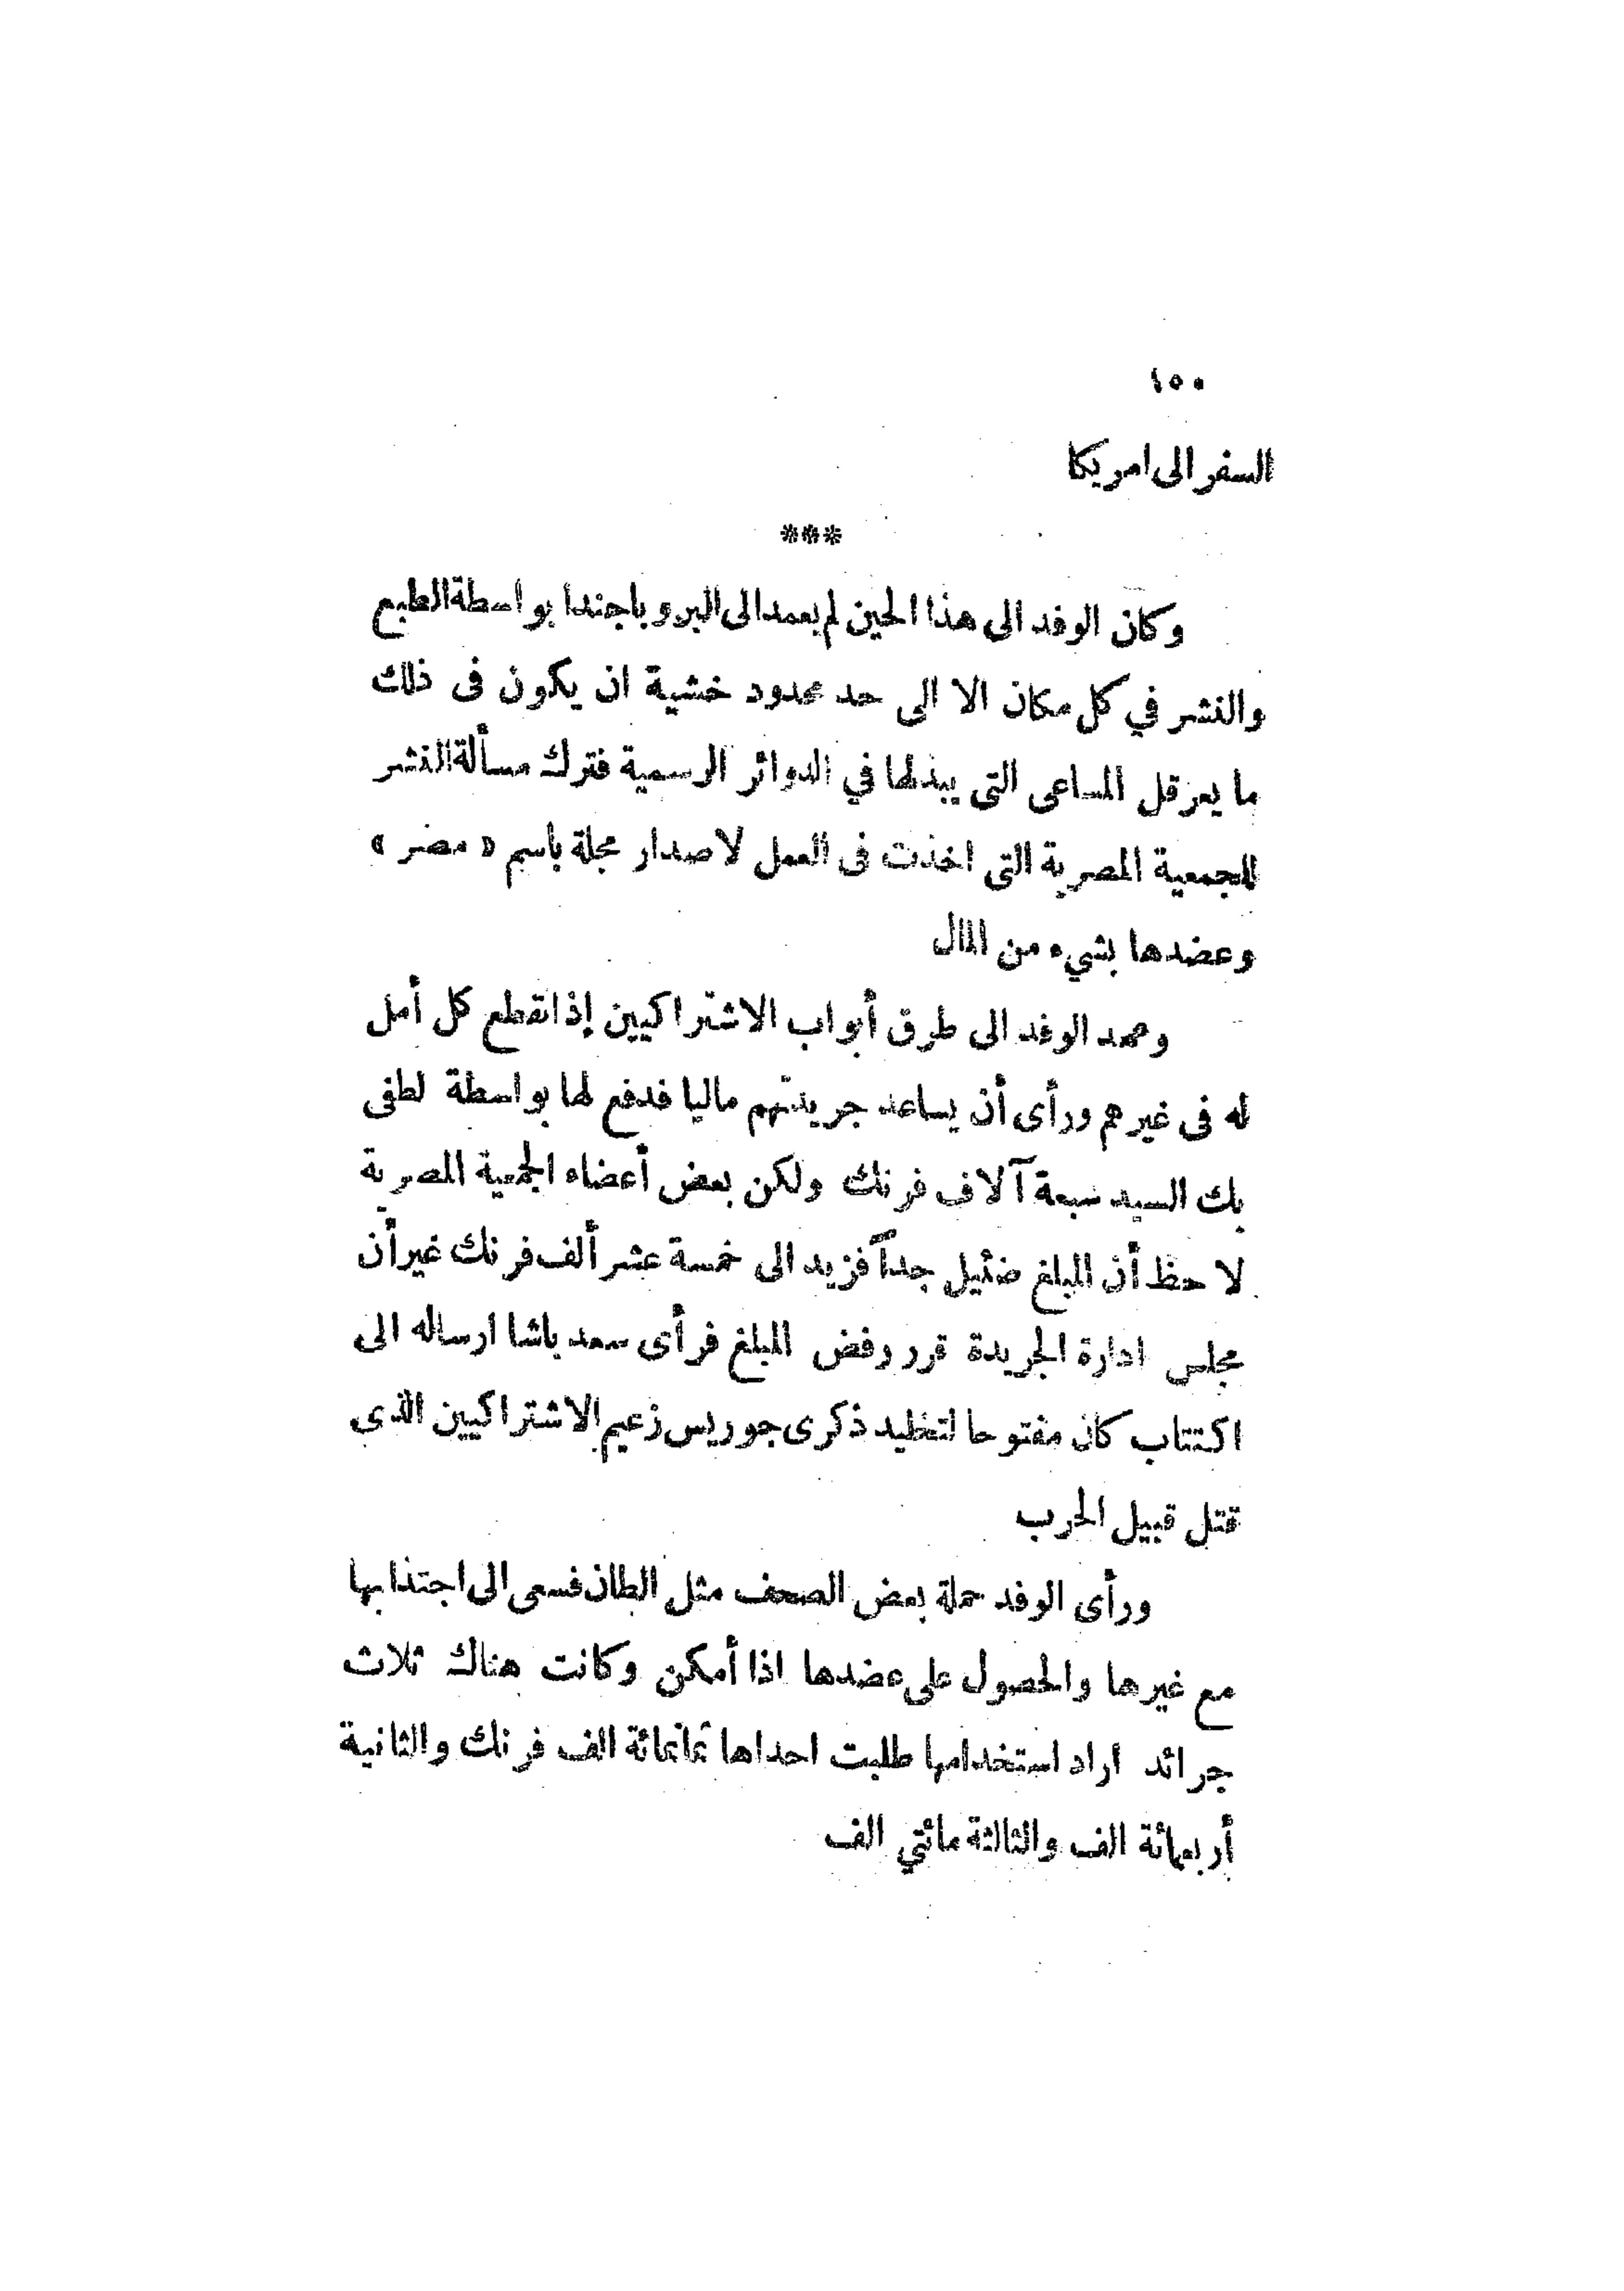 ١٥٠
السفر الى امريكا
***
وكان الوفد الى هذا الحين لم يعمد الى البروباجندا بواسطة الطبع
والنشر في كل مكان الا الى حد محدود خشية ان يكون فى ذلك
ما يعرقل المساعى التى يبذلها في الدوائر الرسمية فترك مسألة النشر
للجمعية المصرية التى اخذت فى العمل لاصدار مجلة باسم « مصر »
وعضدها بشيء من المال
وعمد الوفد الى طرق أبواب الاشتراكيين إذ انقطع كل أمل
له فى غيرهم ورأى أن يساعد جريدتهم ماليا فدفع لها بواسطة لطفى
بك السيد سبعة آلاف فرنك ولكن بعض أعضاء الجمعية المصرية
لاحظ أن المبلغ ضئيل جداً فزيد الى خمسة عشر ألف فرنك غير أن
مجلس ادارة الجريدة قرر رفض المبلغ فرأى سعد باشا ارساله الى
اكتتاب كان مفتوحا لتخليد ذكرى جوريس زعيم الاشتراكيين الذى
قتل قبيل الحرب
ورأى الوفد حملة بعض الصحف مثل الطان فسعى الى اجتذابها
مع غيرها والحصول على عضدها اذا أمكن وكانت هناك ثلاث
جرائد اراد استخدامها طلبت احداها ثمانمائة الف فرنك والثانية
أربعمائة الف والثالثة مائتي الف